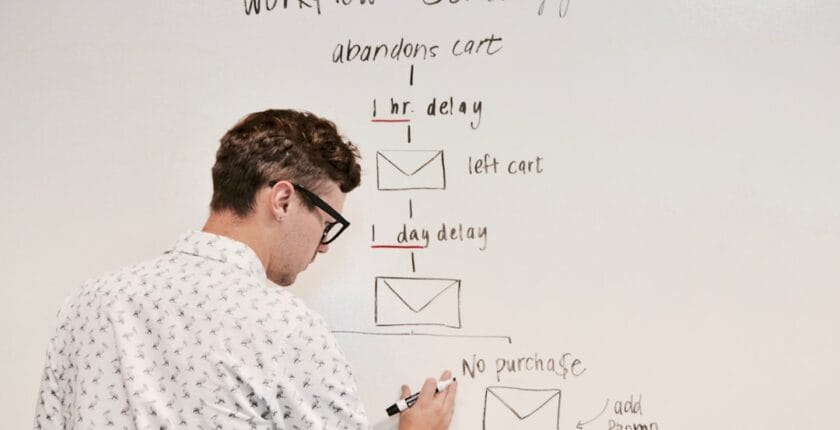 workflow
abandons cart
1 hr. delay
left cart
1 day delay
No purcha$e
add
promo